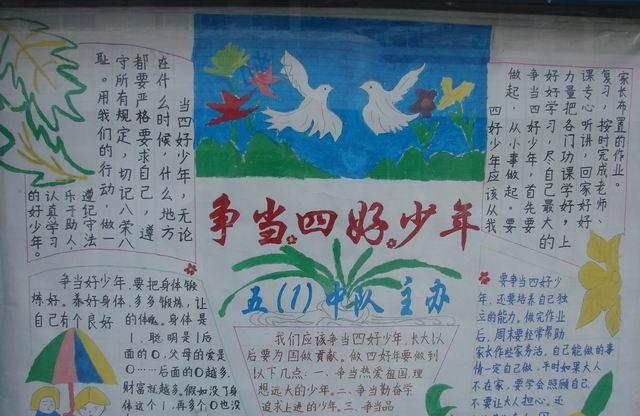 争当四好少年
五(1)中队主办
当四好少年，无论
在什么时候，什么地方
都要严格要求自己，遵
守所有规定，切记八荣八
耻。用我们的行动，做一
遵纪守法
乐于助人，
认真学习
的好少年。
家长布置的作业。
复习，按时完成老师、
课专心听讲，回家好好
力量把各门功课学好，上
好好学习，尽自己最大的
争当四好少年，首先要
做起，从小事做起。要
四好少年应该从我
争当好少年，要把身体锻
炼好。养好身体，多多锻炼，让
自己有个良好
的体魄。身体是
1，聪明是1后
面的0，父母的爱是
0……后面的0越多，
财富就越多。假如没了身
体这个1，再多个0也没
我们应该争当四好少年，长大以
后要为国做贡献。做四好年要做到
以下几点：一、争当热爱祖国，理
想远大的少年。二、争当勤奋学
追求上进的少年。三、争当品
要争当四好少
年，还要培养自己独
立的能力。做完作业
后，周末要经常帮助
家长作些家务活，自己能做的事
情一定自己做，平时如果大人
不在家，要学会照顾自己
不要让大人担心。还